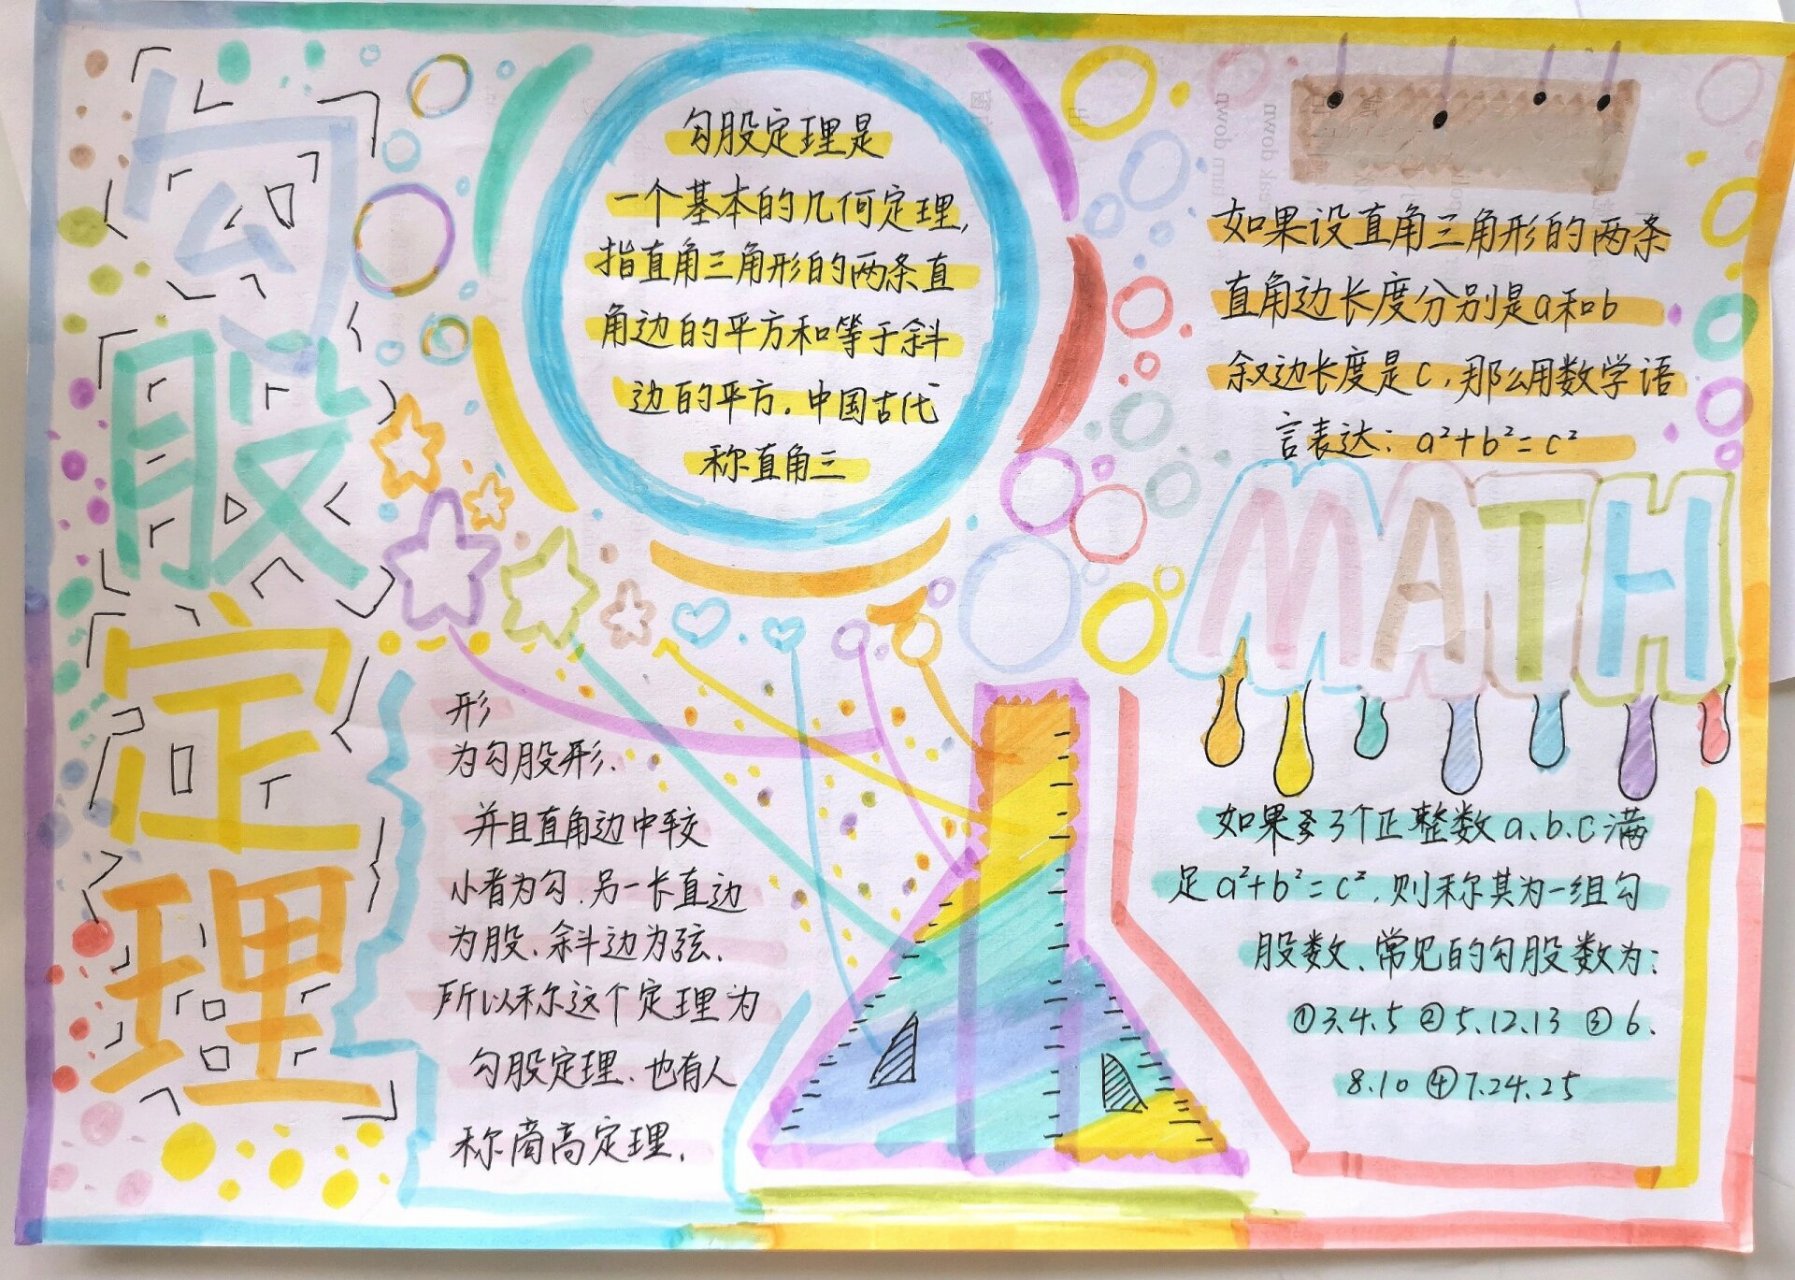 勾
股
定
理
勾股定理是
一个基本的几何定理,
指直角三角形的两条直
角边的平方和等于斜
边的平方.中国古代
称直角三
形
为勾股形.
并且直角边中较
小者为勾.另一长直边
为股.斜边为弦.
所以称这个定理为
勾股定理.也有人
称商高定理.
如果设直角三角形的两条
直角边长度分别是a和b
斜边长度是c,那么用数学语
言表达: a²+b²=c²
MATH
如果3个正整数a.b.c满
足a²+b²=c².则称其为一组勾
股数.常见的勾股数为:
①3.4.5 ②5.12.13 ③6.
8.10 ④7.24.25